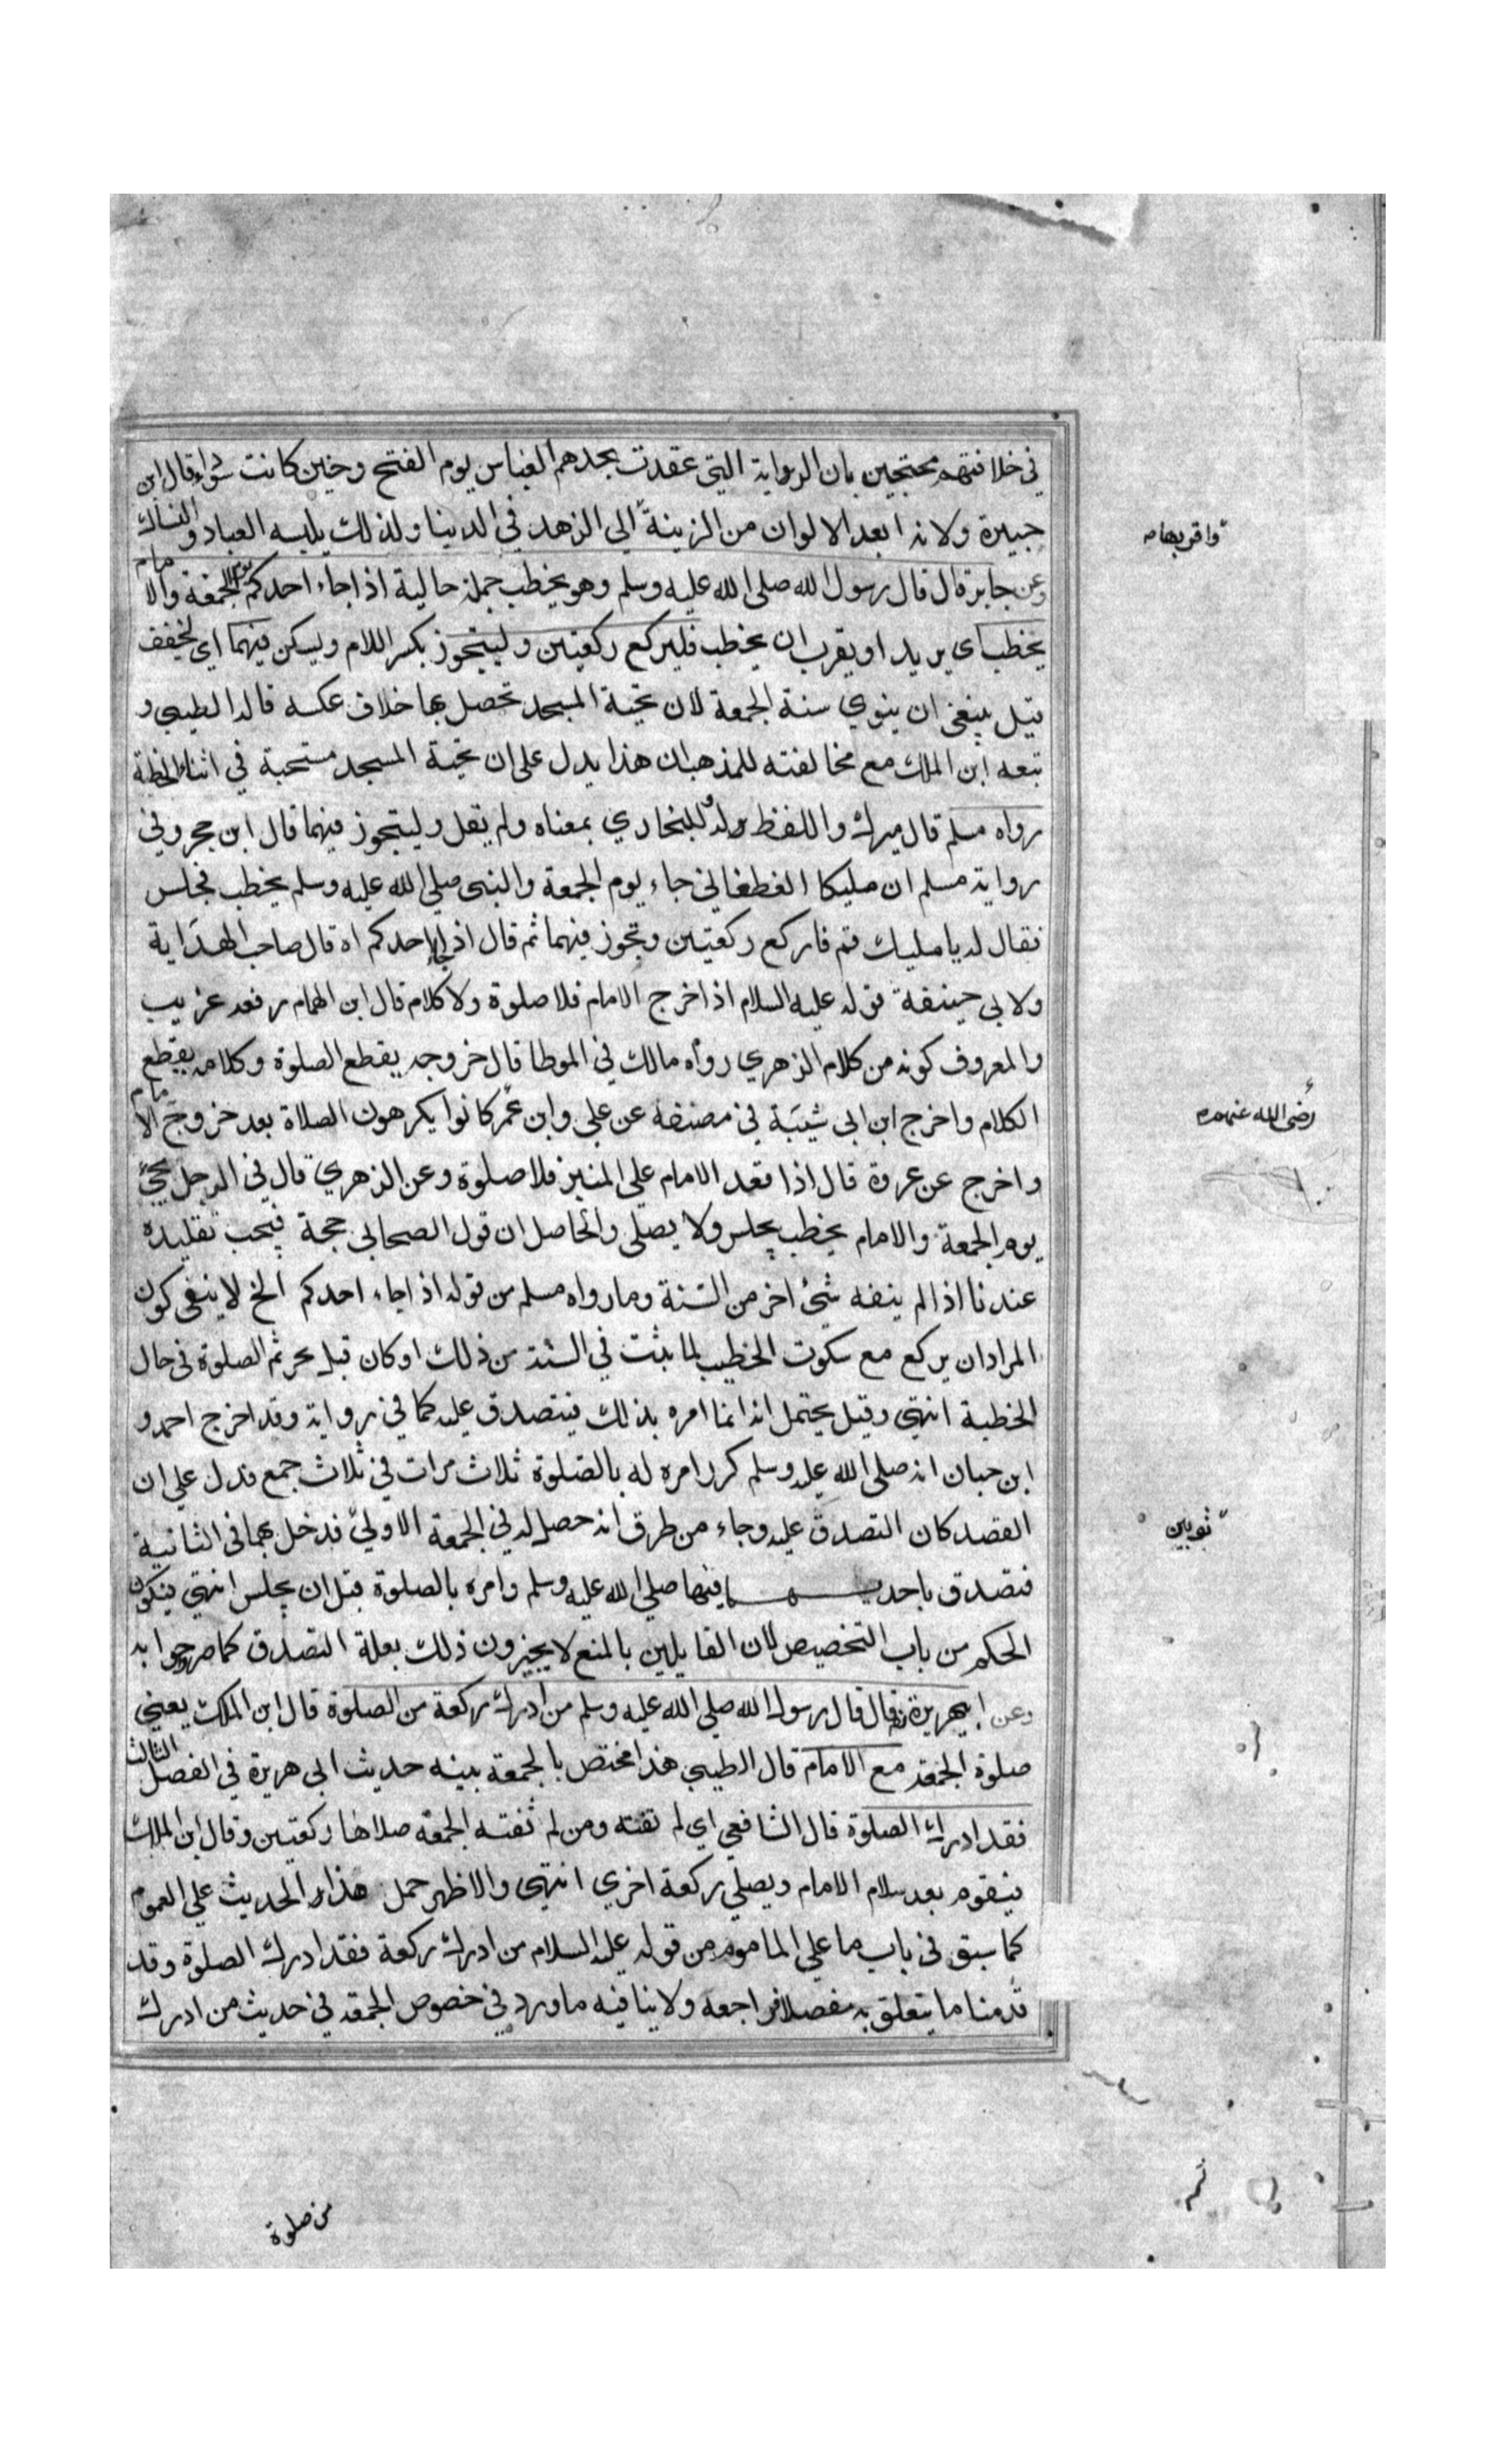 في خلافتهم محتجين بان الرواية التي عقدت بجدهم العباس يوم الفتح وحنين كانت سوداء قال ابن
جبيرة ولانه ابعد الالوان من الزينة الي الزهد في الدينا ولذلك يلبسه العباد والنساك
واقربها
وعن جابر قال قال رسول الله صلى الله عليه وسلم وهو يخطب جملة حالية اذا جاء احدكم يوم الجمعة والامام
يخطب اي يريد او يقرب ان يخطب فليركع ركعتين وليتجوز بكسر اللام ويسكن فيهما اي ليخفف
قيل ينبغي ان ينوي سنة الجمعة لان تحية المسجد تحصل بها خلاف عكسه قاله الطيبي و
تبعه ابن الملك مع مخالفته للمذهب ان هذا يدل على ان تحية المسجد مستحبة في اثناء الخطبة
رواه مسلم قال ميرك واللفظ له وللبخاري بمعناه ولم يقل وليتجوز فيهما قال ابن حجر وفي
رواية مسلم ان سليكا الغطفاني جاء يوم الجمعة والنبي صلي الله عليه وسلم يخطب فجلس
فقال له يا سليك قم فاركع ركعتين وتجوز فيهما ثم قال اذا جاء احدكم اه قال صاحب الهداية
ولابي حنيفة قوله عليه السلام اذا خرج الامام فلا صلوة ولا كلام قال ابن الهمام رفعه غريب
والمعروف كونه من كلام الزهري رواه مالك في الموطا قال خروجه يقطع الصلوة وكلامه يقطع
الكلام واخرج ابن ابي شيبة في مصنفه عن علي وابن عمر كانوا يكرهون الصلاة بعد خروج الامام
رضى الله عنهم
واخرج عن عروة قال اذا قعد الامام على المنبر فلا صلوة وعن الزهري قال في الرجل يجئ
يوم الجمعة والامام يخطب يجلس ولا يصلى والحاصل ان قول الصحابي حجة فيجب تقليده
عندنا اذا لم ينفه شئ اخر من السنة وما رواه مسلم من قوله اذا جاء احدكم الخ لا ينفي كون
المراد ان يركع مع سكوت الخطيب لما ثبت في السنة من ذلك او كان قبل تحريم الصلوة في حال
الخطبة انتهي وقيل يحتمل انه انما امره بذلك ليتصدق عليه كما في رواية وقد اخرج احمد و
ابن حبان انه صلى الله عليه وسلم كرر امره له بالصلوة ثلاث مرات في ثلاث جمع فدل علي ان
القصد كان التصدق عليه وجاء من طرق انه حصل له في الجمعة الاولي فدخل بهما في الثانية
ثوبين
فتصدق باحديهما فنها صلي الله عليه وسلم وامره بالصلوة قبل ان يجلس انتهي فيكون
الحكم من باب التخصيص لان القايلين بالمنع لا يجيزون ذلك بعلة التصدق كما صرحوا به
وعن ابي هريرة قال قال رسول الله صلي الله عليه وسلم من ادرك ركعة من الصلوة قال ابن الملك يعني
صلوة الجمعة مع الامام قال الطيبي هذا مختص بالجمعة بينه حديث ابي هريرة في الفصل الثالث
فقد ادرك الصلوة قال الشافعي اي لم تفته ومن لم تفته الجمعة صلاها ركعتين وقال ابن الملك
فيقوم بعد سلام الامام ويصلي ركعة اخري انتهي والاظهر حمل هذا الحديث علي العموم
كما سبق في باب ما علي الماموم من قوله عليه السلام من ادرك ركعة فقد ادرك الصلوة وقد
قدمنا ما يتعلق به مفصلا فراجعه ولا ينافيه ما ورد في خصوص الجمعة في حديث من ادرك
من صلوة